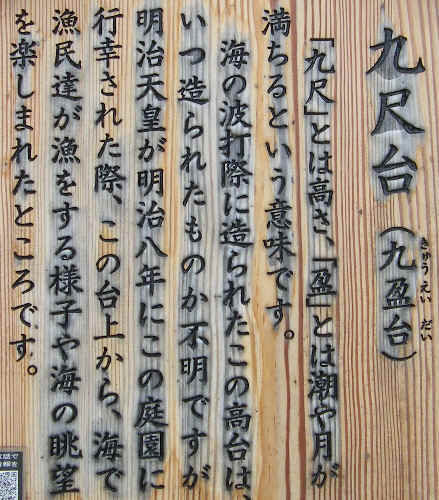 九尺台(九盈台)
きゅうえいだい
「九尺」とは高さ、「盈」とは潮や月が
満ちるという意味です。
海の波打際に造られたこの高台は、
いつ造られたものか不明ですが
明治天皇が明治八年にこの庭園に
行幸された際、この台上から、海で
漁民達が漁をする様子や海の眺望
を楽しまれたところです。